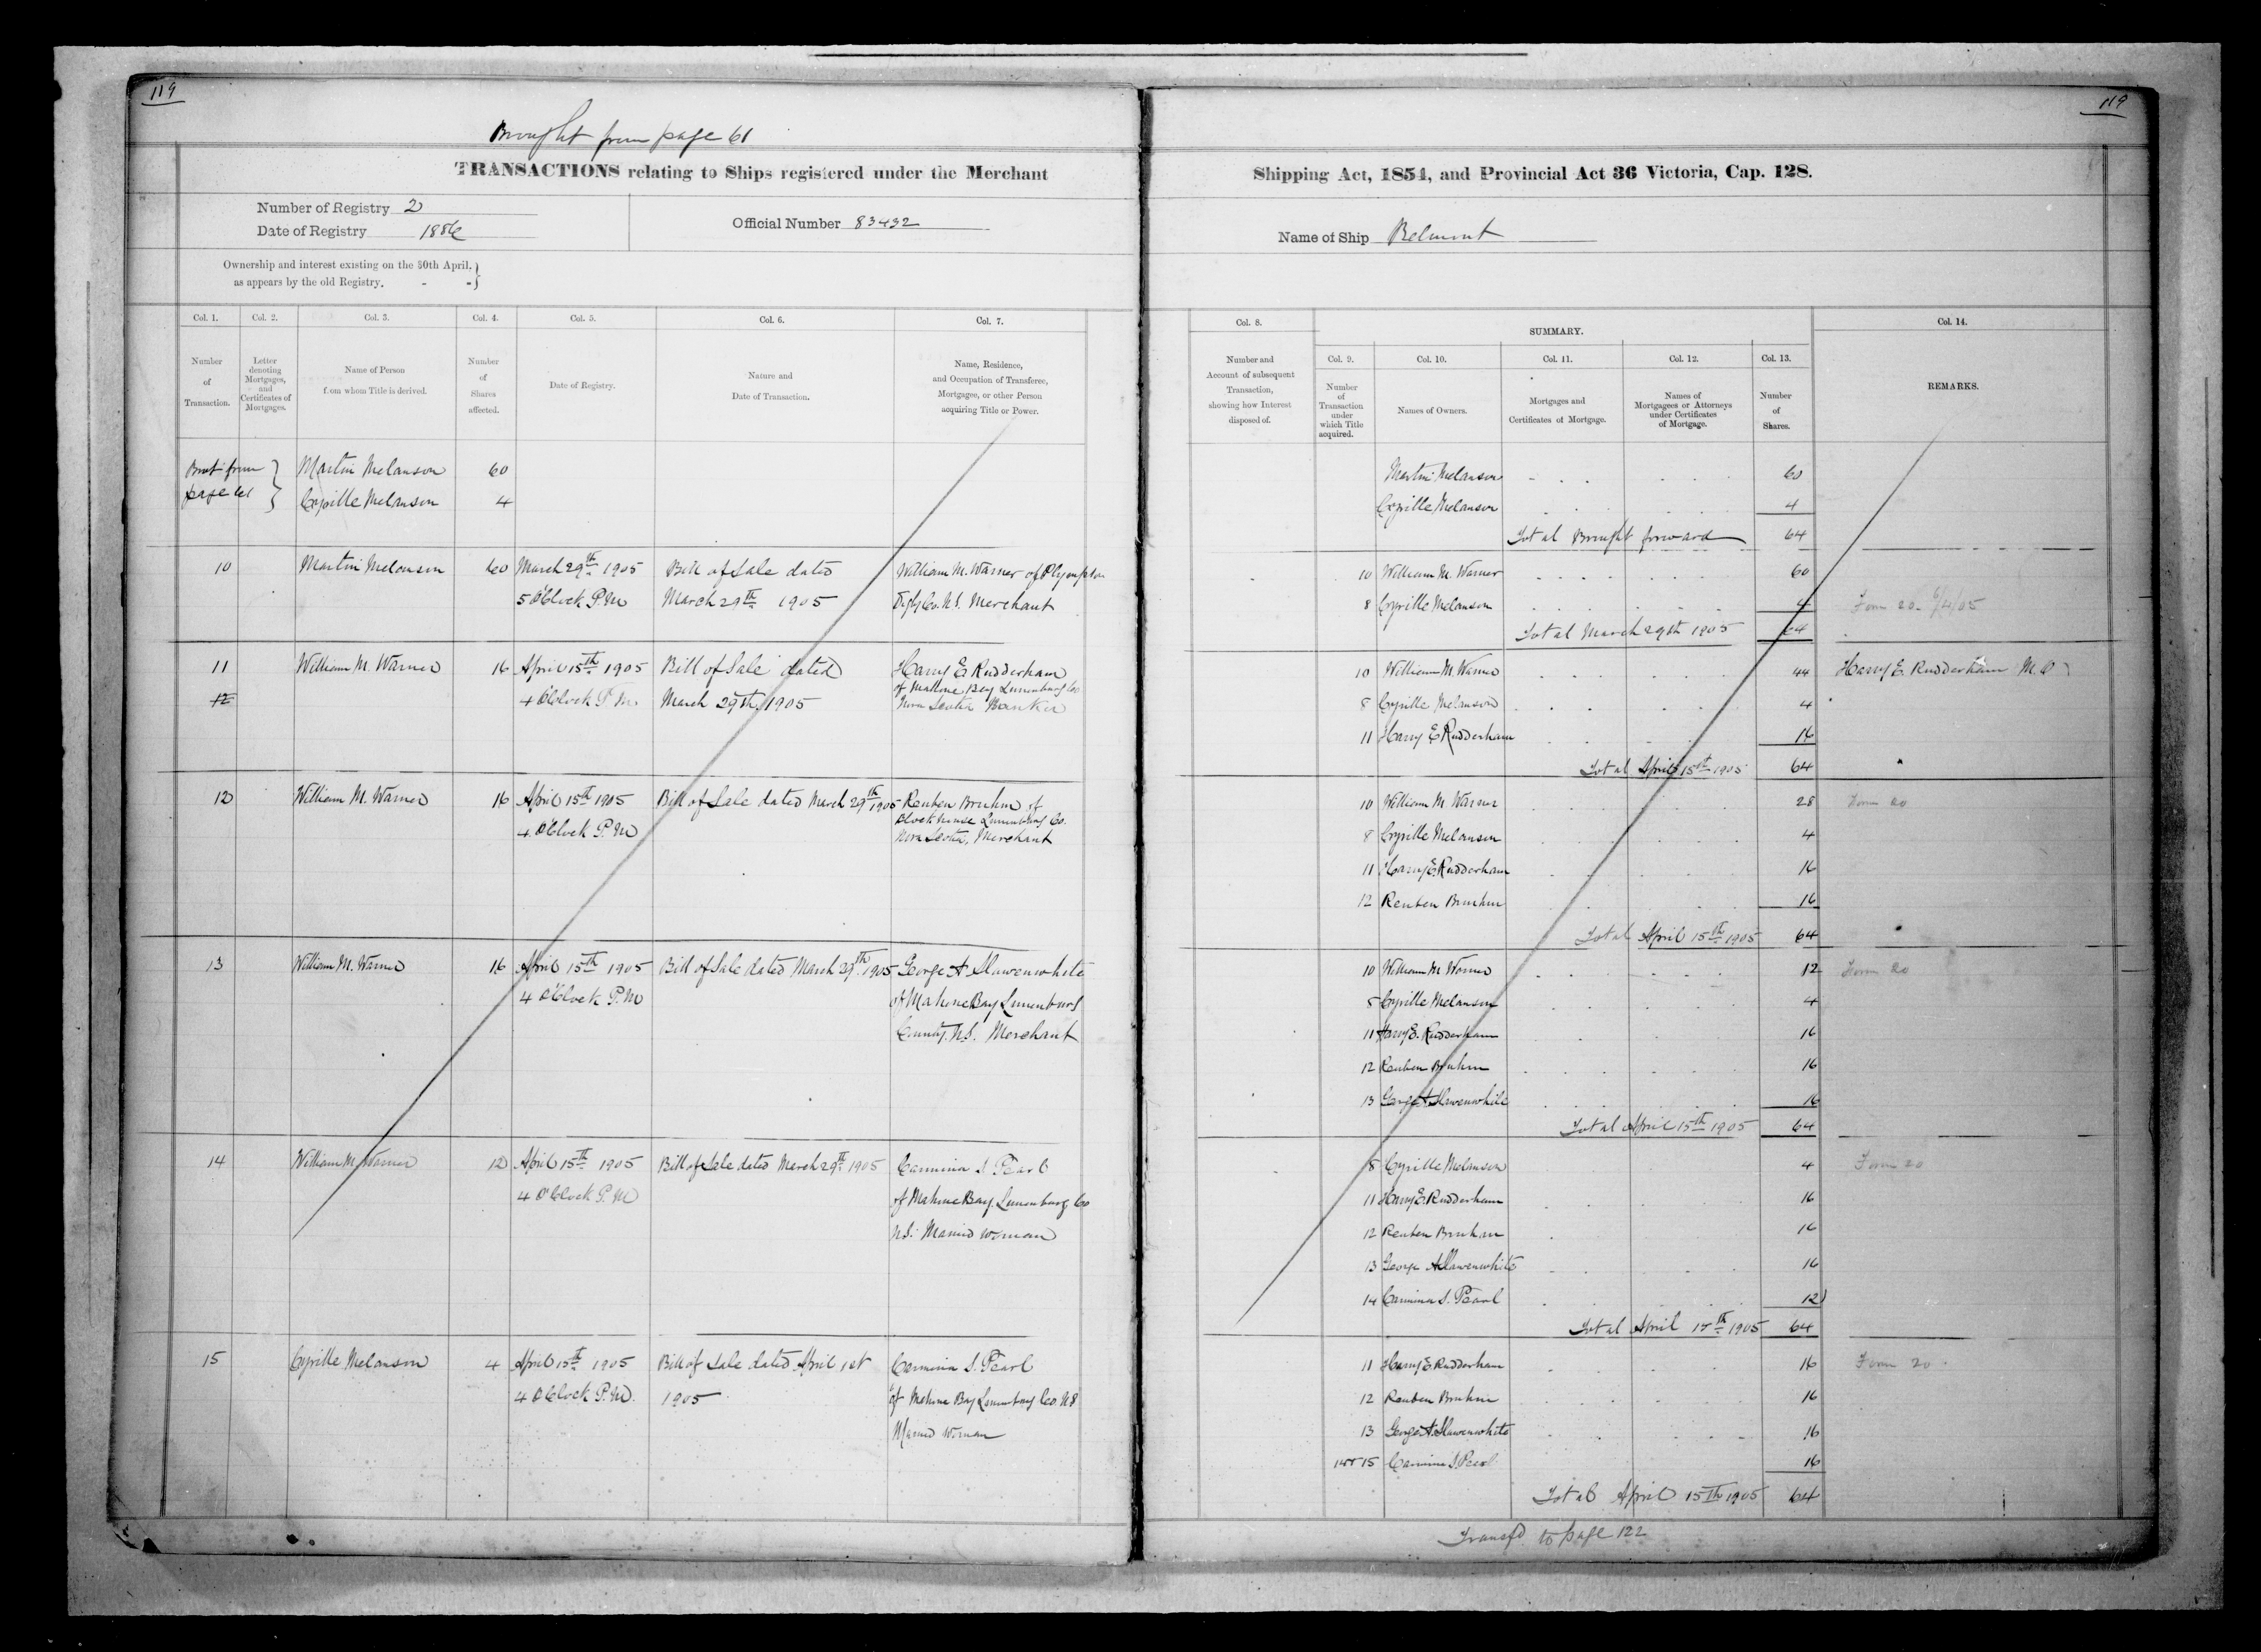 119
119
Brought from page 61
TRANSACTIONS relating to Ships registered under the Merchant
Shipping Act, 1854, and Provincial Act 36 Victoria, Cap. 128.
Number of Registry 2
Date of Registry 1886
Official Number 83432
Name of Ship Belmont
Ownership and interest existing on the 30th April,
as appears by the old Registry. - -
Col. 1.
Number
of
Transaction.
Col. 2.
Letter
denoting
Mortgages,
and
Certificates of
Mortgages.
Col. 3.
Name of Person
from whom Title is derived.
Col. 4.
Number
of
Shares
affected.
Col. 5.
Date of Registry.
Col. 6.
Nature and
Date of Transaction.
Col. 7.
Name, Residence,
and Occupation of Transferee,
Mortgagee, or other Person
acquiring Title or Power.
Col. 8.
Number and
Account of subsequent
Transaction,
showing how Interest
disposed of.
SUMMARY.
Col. 9.
Number
of
Transaction
under
which Title
acquired.
Col. 10.
Names of Owners.
Col. 11.
Mortgages and
Certificates of Mortgage.
Col. 12.
Names of
Mortgagees or Attorneys
under Certificates
of Mortgage.
Col. 13.
Number
of
Shares.
Col. 14.
REMARKS.
Brot from Martin Melanson 60
page 61 Cyrille Melanson 4
Martin Melanson 60
Cyrille Melanson 4
Total Brought forward 64
10 Martin Melanson 60 March 29th 1905 Bill of Sale dated William M. Warner of Plympton
5 O'Clock P.M March 29th 1905 Digby Co. N.S. Merchant
10 William M. Warner 60
8 Cyrille Melanson 4 Form 20. 6/4/05
Total March 29th 1905 64
11 William M. Warner 16 April 15th 1905 Bill of Sale dated Harry E Rudderham
of Mahone Bay Lunenburg Co
12 4 O'Clock P.M March 29th 1905 Nova Scotia Banker
10 William M. Warner 44 Harry E. Rudderham M.O
8 Cyrille Melanson 4
11 Harry E Rudderham 16
Total April 15th 1905 64
12 William M. Warner 16 April 15th 1905 Bill of Sale dated March 29th 1905 Reuben Bruhm of
Blockhouse Lunenburg Co.
4 O'Clock P.M Nova Scotia, Merchant
10 William M. Warner 28 Form 20
8 Cyrille Melanson 4
11 Harry E. Rudderham 16
12 Reuben Bruhm 16
Total April 15th 1905 64
13 William M. Warner 16 April 15th 1905 Bill of Sale dated March 29th 1905 George A Slawenwhite
4 O'Clock P.M of Mahone Bay Lunenburg
County. N.S. Merchant
10 William M Warner 12 Form 20
8 Cyrille Melanson 4
11 Harry E. Rudderham 16
12 Reuben Bruhm 16
13 George A Slawenwhite 16
Total April 15th 1905 64
14 William M. Warner 12 April 15th 1905 Bill of Sale dated March 29th 1905 Carmina S. Pearl
4 O'Clock P.M of Mahone Bay, Lunenburg Co
N.S. Married woman
8 Cyrille Melanson 4 Form 20
11 Harry E. Rudderham 16
12 Reuben Bruhm 16
13 George A Slawenwhite 16
14 Carmina S. Pearl 12
Total April 15th 1905 64
15 Cyrille Melanson 4 April 15th 1905 Bill of Sale dated April 1st Carmina S. Pearl
4 O'Clock P.M. 1905 of Mahone Bay Lunenburg Co. NS
Married Woman
11 Harry E Rudderham 16 Form 20
12 Reuben Bruhm 16
13 George A. Slawenwhite 16
14 & 15 Carmina S. Pearl 16
Total April 15th 1905 64
Transfd. to page 122